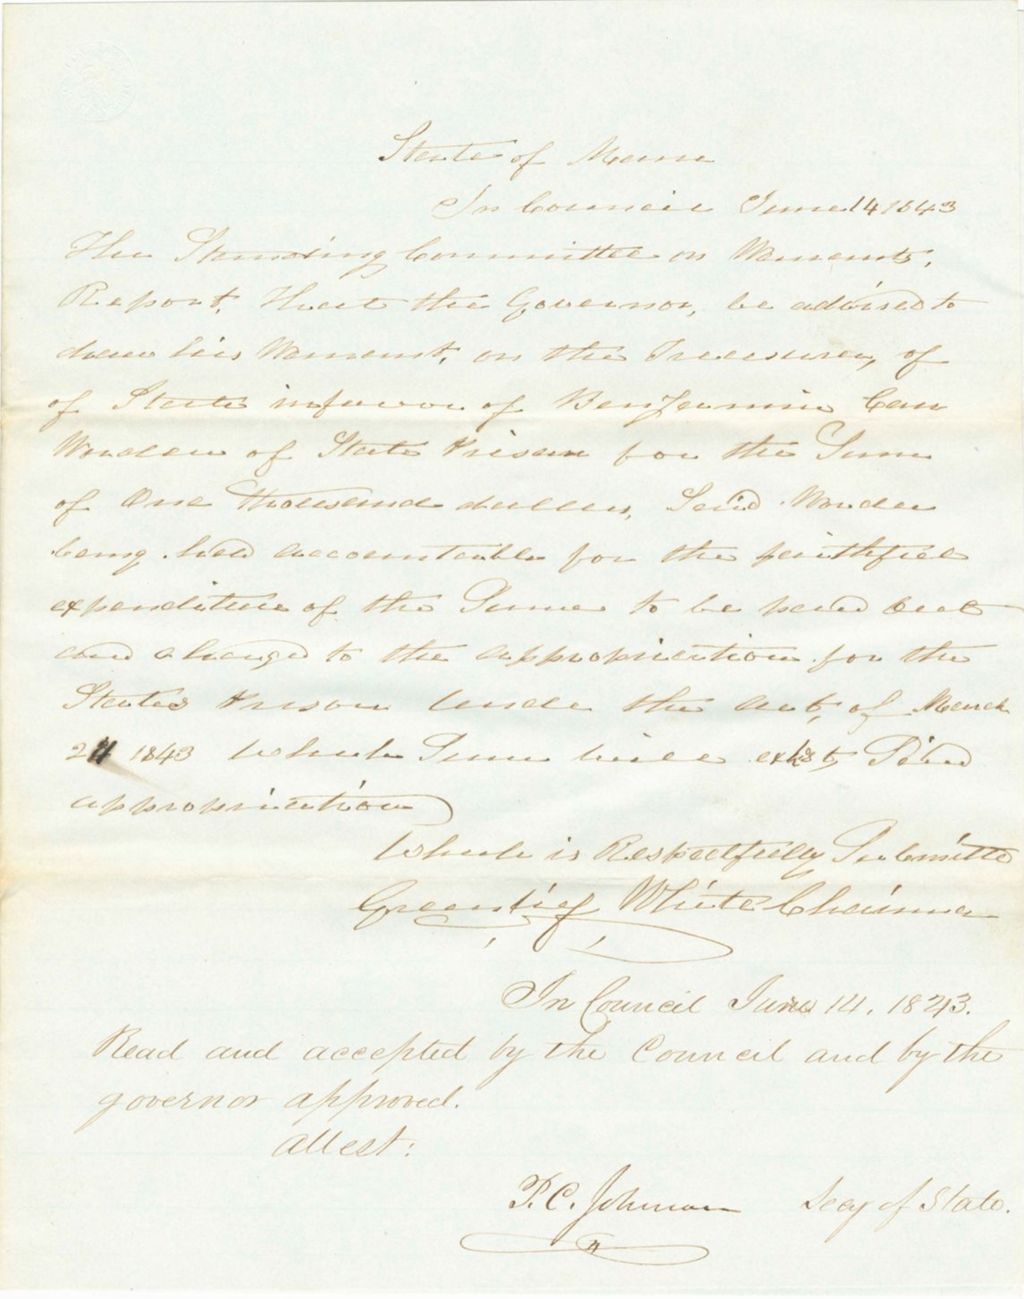 State of Maine
In Council June 14 1843
The Standing Committee on Warrants,
Report, That the Governor, be advised to
draw his Warrant, on the Treasurer, of
of State in favor of Benjamin Carr
Warden of State Prison for the Sum
of One Thousand dollars, Said Warden
being held accountable for the faithful
expenditure of the Same to be paid out
and charged to the appropriation for the
States Prison under the act, of March
1843 which Sum will exhst, Said
appropriation
Which is Respectfully Submitted
Greenlief White Chairman
In Council June 14, 1843.
Read and accepted by the Council and by the
governor approved.
Attest:
P. C. Johnson Secy of State.